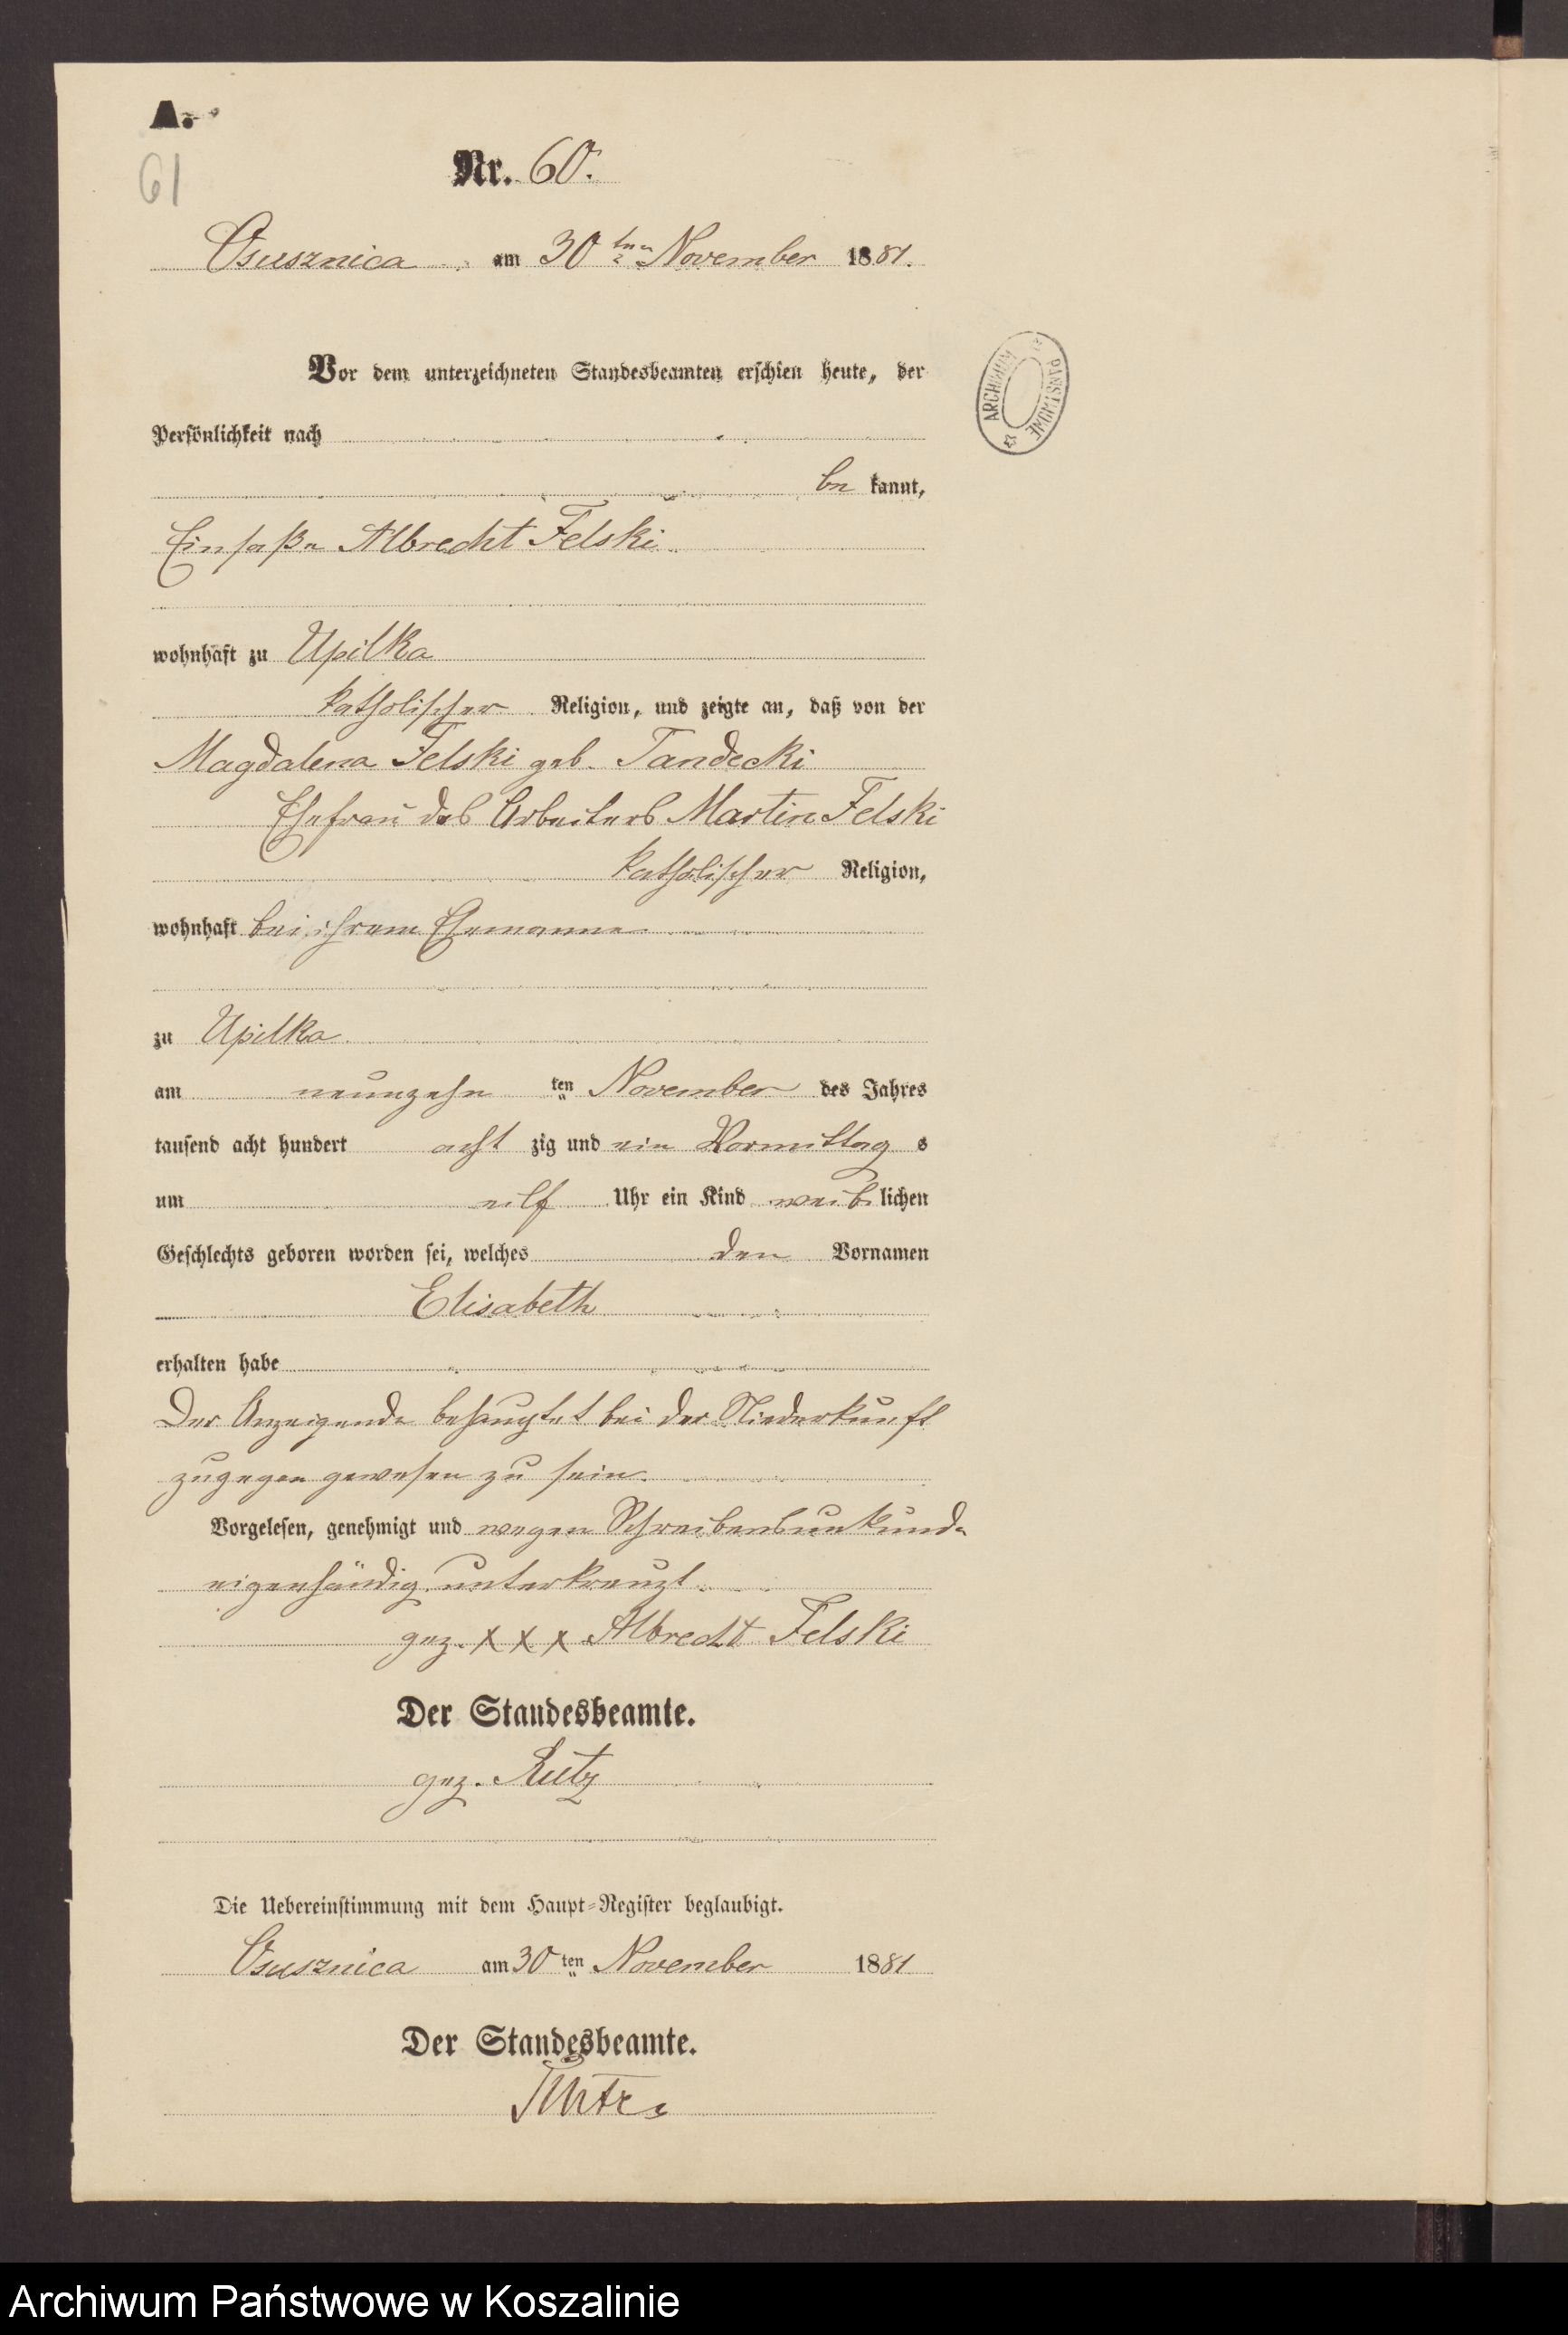 A.
61
Nr. 60.
Osusznica am 30ten November 1881.
Vor dem unterzeichneten Standesbeamten erschien heute, der
Persönlichkeit nach
be kannt,
Einsaße Albrecht Felski
wohnhaft zu Upilka
katholischer Religion, und zeigte an, daß von der
Magdalena Felski geb. Tandecki
Ehefrau des Arbeiters Martin Felski
katholischer Religion,
wohnhaft bei ihrem Ehemanne
zu Upilka
am neunzehn ten November des Jahres
tausend acht hundert acht zig und ein Vormittag s
um eilf Uhr ein Kind weib lichen
Geschlechts geboren worden sei, welches den Vornamen
Elisabeth
erhalten habe
Der Anzeigende behauptet bei der Niederkunft
zugegen gewesen zu sein.
Vorgelesen, genehmigt und wegen Schreibensunkunde
eigenhändig unterkreuzt.
gez. X X X Albrecht Felski
Der Standesbeamte.
gez. Rutz
Die Uebereinstimmung mit dem Haupt-Register beglaubigt.
Osusznica am 30ten November 1881
Der Standesbeamte.
ARCHIWUM PAŃSTWOWE
Archiwum Państwowe w Koszalinie